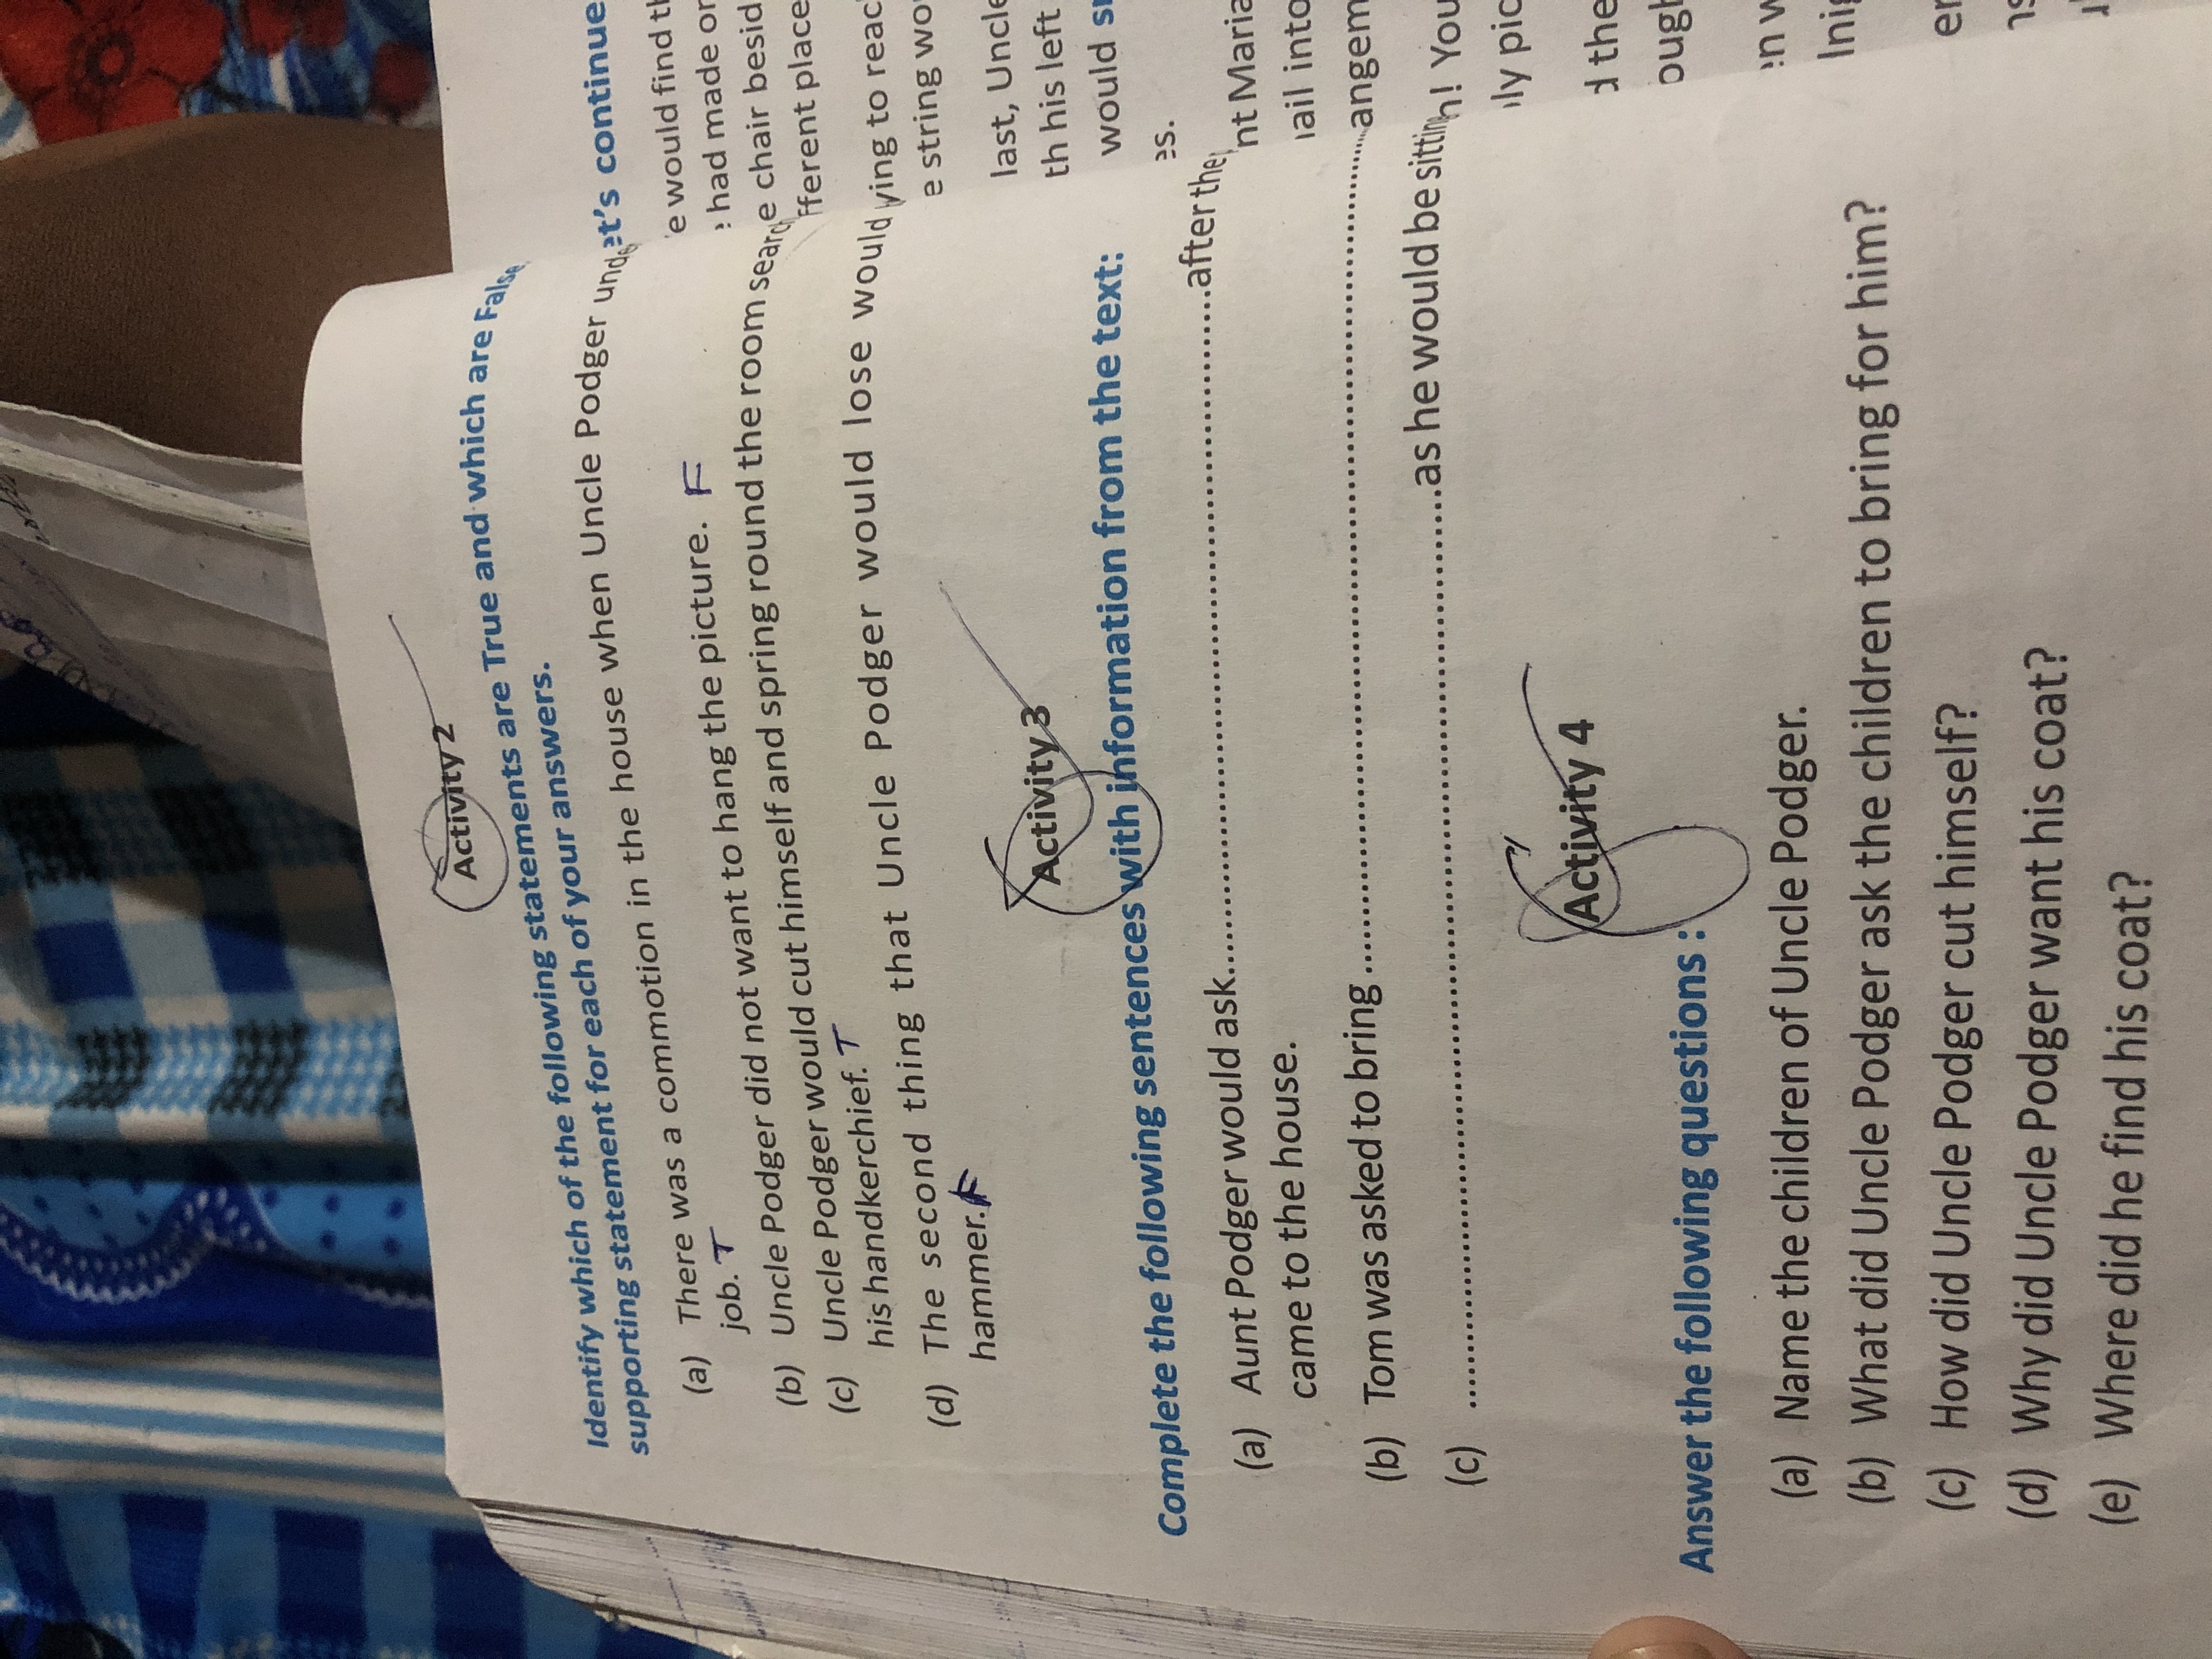 Activity 2
Identify which of the following statements are True and which are False
supporting statement for each of your answers.
(a) There was a commotion in the house when Uncle Podger
job. T
(b) Uncle Podger did not want to hang the picture. F
(c) Uncle Podger would cut himself and spring round the room
his handkerchief. T
(d) The second thing that Uncle Podger would lose would
hammer. F
Activity 3
Complete the following sentences with information from the text:
(a) Aunt Podger would ask..............................after the
came to the house.
(b) Tom was asked to bring ..............................
(c) ..............................as he would be
Activity 4
Answer the following questions :
(a) Name the children of Uncle Podger.
(b) What did Uncle Podger ask the children to bring for him?
(c) How did Uncle Podger cut himself?
(d) Why did Uncle Podger want his coat?
(e) Where did he find his coat?
et's continue
e would find
had made
e chair
fferent place
ying to
e string
last, Uncle
th his left
would
es.
nt Maria
ail into
angem
h! You
ly
d the